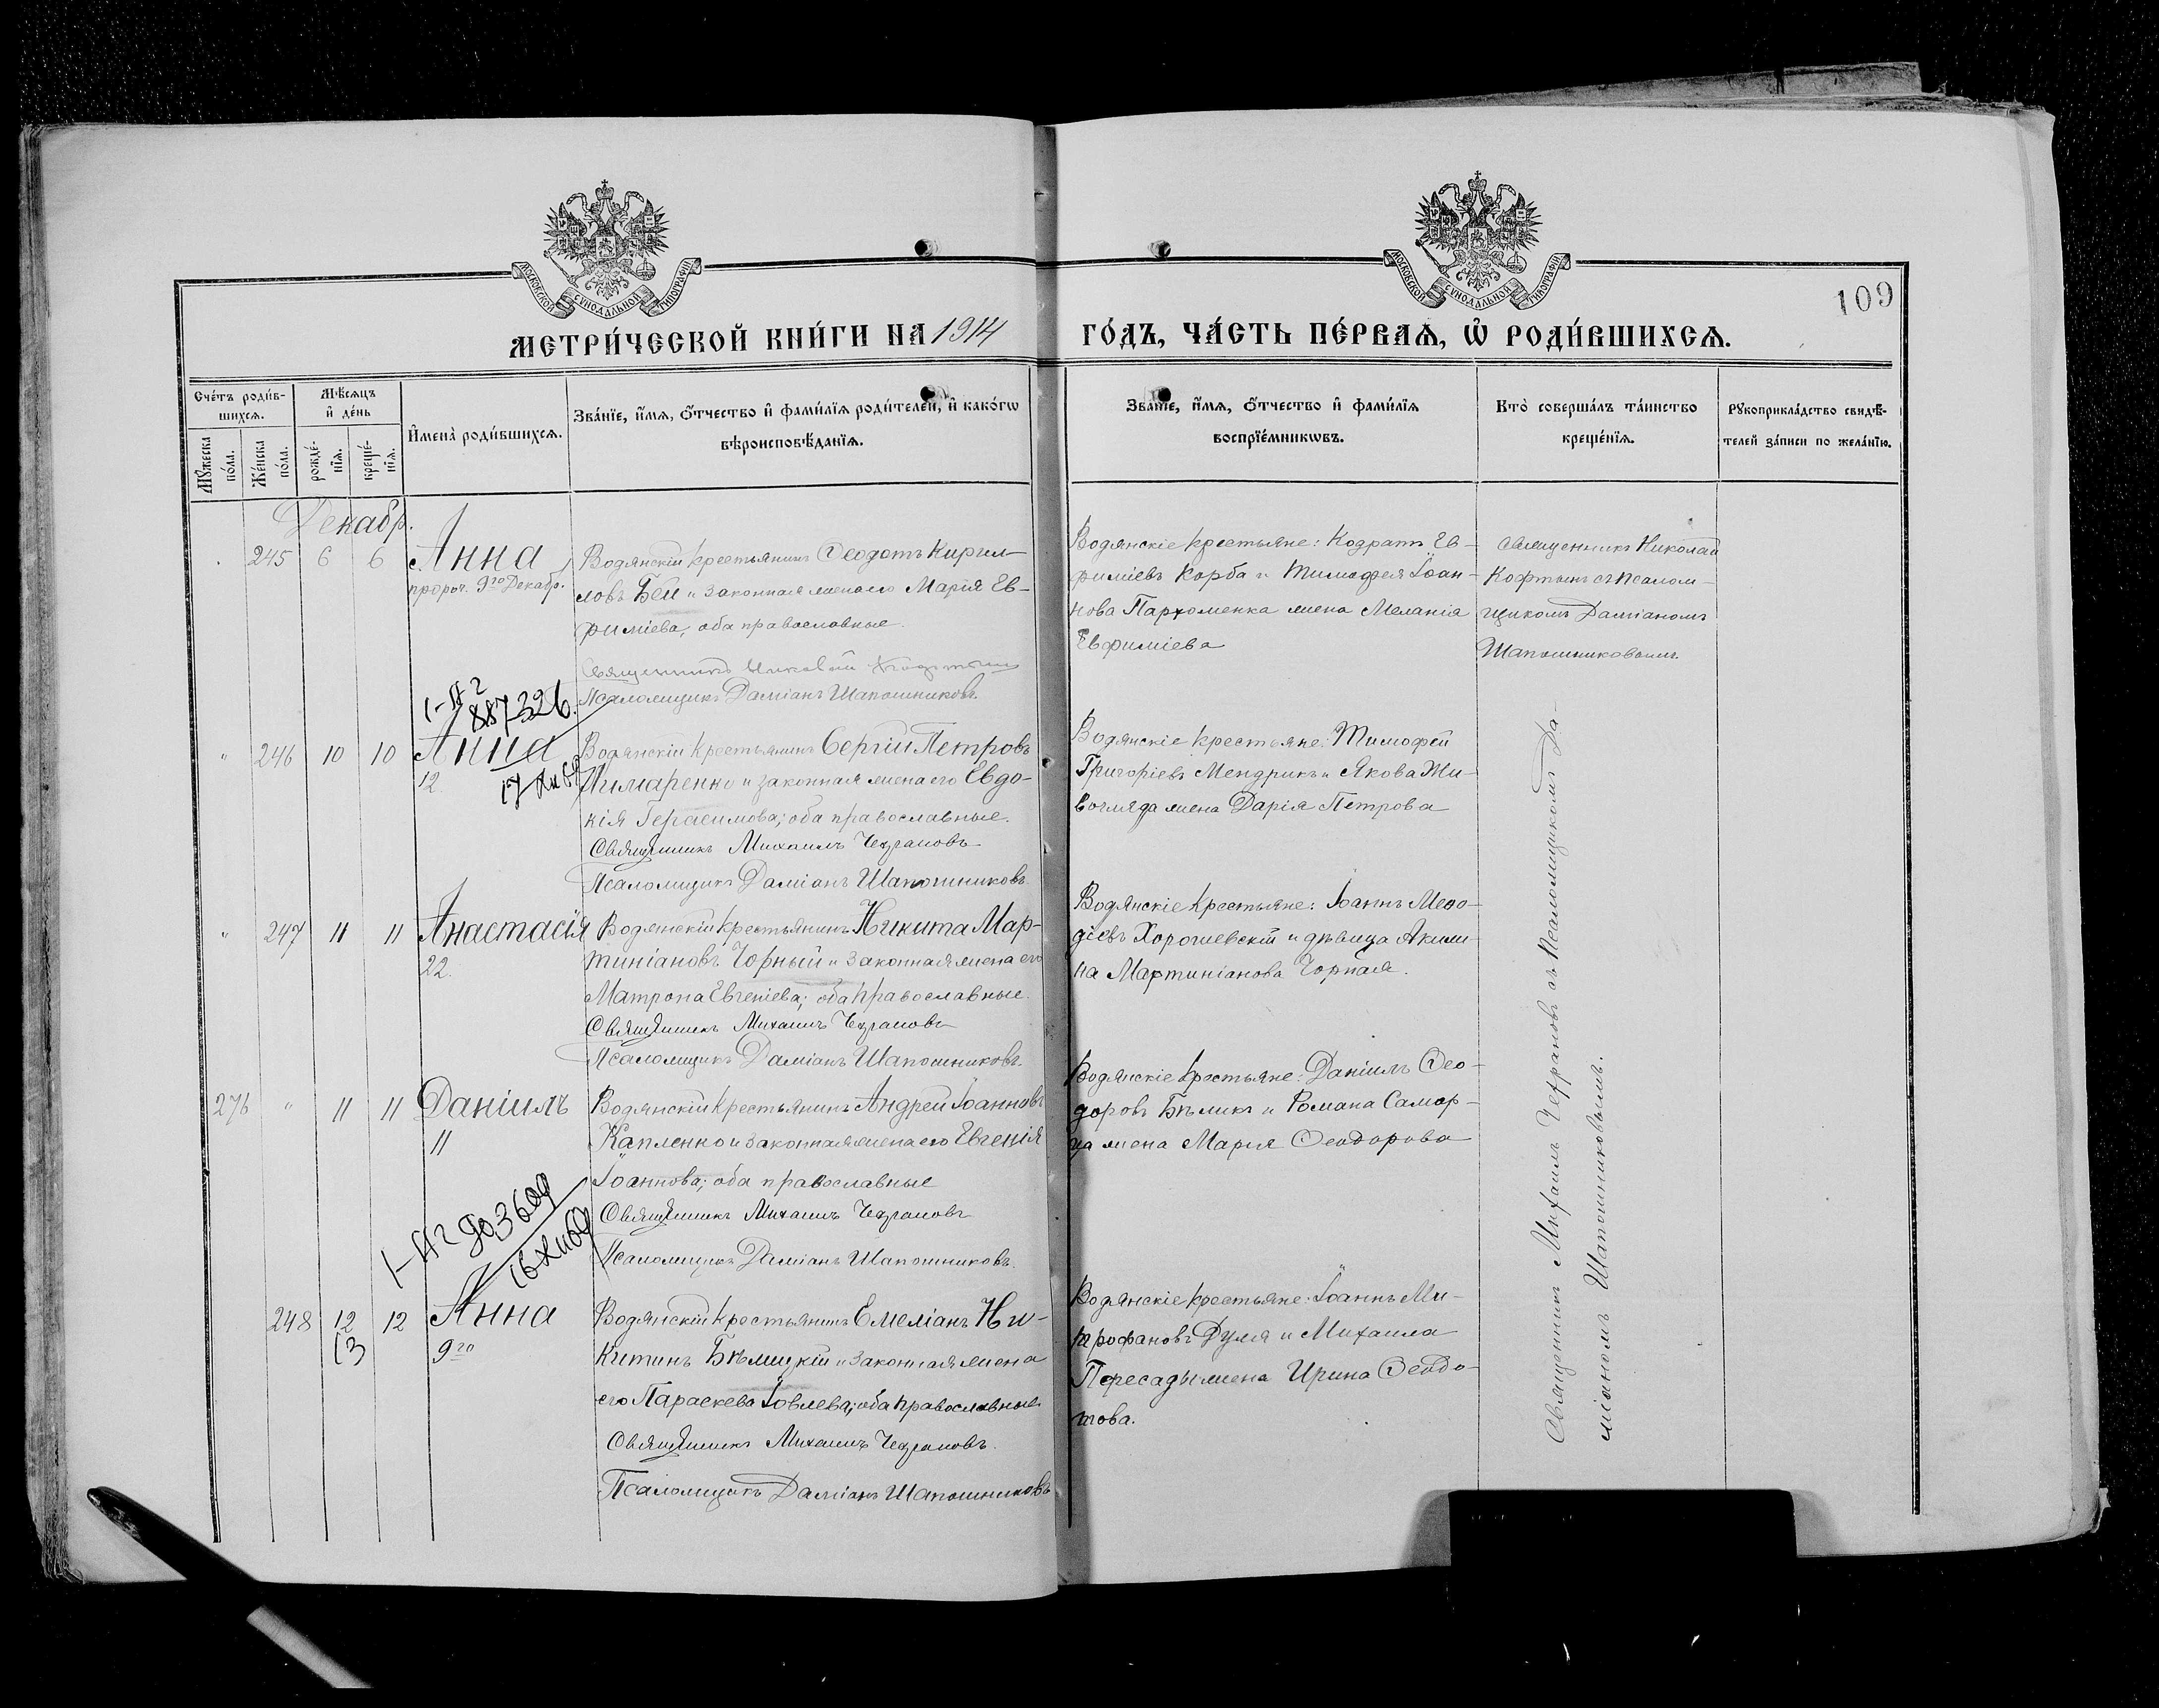 109
МОСКОВСКОЙ СУНОДАЛЬНОЙ ТИПОГРАФІИ
МОСКОВСКОЙ СУНОДАЛЬНОЙ ТИПОГРАФІИ
МЕТРИ́ЧЕСКОЙ КНИ́ГИ НА 1914 ГО́ДЪ, ЧА́СТЬ ПЕ́РВАѦ, Ѡ҆ РОДИ́ВШИХСѦ.
Сче́тъ роди́в-
шихсѧ.
Мꙋ́жеска по́ла.
Же́нска по́ла.
Мѣ́сѧцъ
и҆ де́нь
рожде́-
нїѧ.
креще́-
нїѧ.
И҆мена̀ роди́вшихсѧ.
Зва́нїе, и҆́мѧ, ѻ҆́тчество и҆ фами́лїѧ роди́телей, и҆ како́гѡ
вѣроисповѣ́данїѧ.
Зва́нїе, и҆́мѧ, ѻ҆́тчество и҆ фами́лїѧ
воспрїе́мникѡвъ.
Кто̀ соверша́лъ та́инство
креще́нїѧ.
Рꙋкоприкла́дство свидѣ́-
телей за́писи по жела́нїю.
Декабр.
245 6 6 Анна
пророч. 9го Декабр.
Водянскій крестьянинъ Ѳеодотъ Кирил-
ловъ Бей и законная жена его Марія Ев-
фиміева, оба православные.
Священникъ Николай Кофтынъ
Псаломщикъ Даміанъ Шапошниковъ.
Водянскіе крестьяне: Кодратъ Ев-
фиміевъ Корба и Тимоѳея Іоан-
нова Пархоменка жена Меланія
Евфиміева
Священникъ Николай
Кофтынъ съ псалом-
щикомъ Даміаномъ
Шапошниковымъ.
1-Н2
887326.
" 246 10 10 Анна
12
Водянскій крестьянинъ Сергій Петровъ
Лимаренко и законная жена его Евдо-
кія Герасимова; оба православные.
Священникъ Михаилъ Чехрановъ
Псаломщикъ Даміанъ Шапошниковъ.
Водянскіе крестьяне: Тимофей
Григоріевъ Мендрикъ и Якова Жи-
вогляда жена Дарія Петрова
" 247 11 11 Анастасія
22.
Водянскій крестьянинъ Никита Мар-
тиніановъ Чорный и законная жена его
Матрона Евгеніева; оба православные.
Священникъ Михаилъ Чехрановъ
Псаломщикъ Даміанъ Шапошниковъ.
Водянскіе крестьяне: Іоаннъ Меѳо-
діевъ Хорошевскій и дѣвица Акили-
на Мартиніанова Чорная.
276 " 11 11 Даніилъ
11
Водянскій крестьянинъ Андрей Іоанновъ
Капленко и законная жена его Евгенія
Іоаннова; оба православные
Священникъ Михаилъ Чехрановъ
Псаломщикъ Даміанъ Шапошниковъ.
Водянскіе крестьяне: Даніилъ Ѳео-
доровъ Бѣликъ и Романа Самар-
ца жена Марія Ѳеодорова
1-Н2
248 12 12 Анна
13 9го
Водянскій крестьянинъ Емеліанъ Ни-
китинъ Бѣлицкій и законная жена
его Параскева Іовлева; оба православные.
Священникъ Михаилъ Чехрановъ.
Псаломщикъ Даміанъ Шапошниковъ
Водянскіе крестьяне: Іоаннъ Ми-
трофановъ Дуля и Михаила
Пересады жена Ирина Ѳеодо-
това.
Священникъ Михаилъ Чехрановъ съ псаломщикомъ Да-
міаномъ Шапошниковымъ.